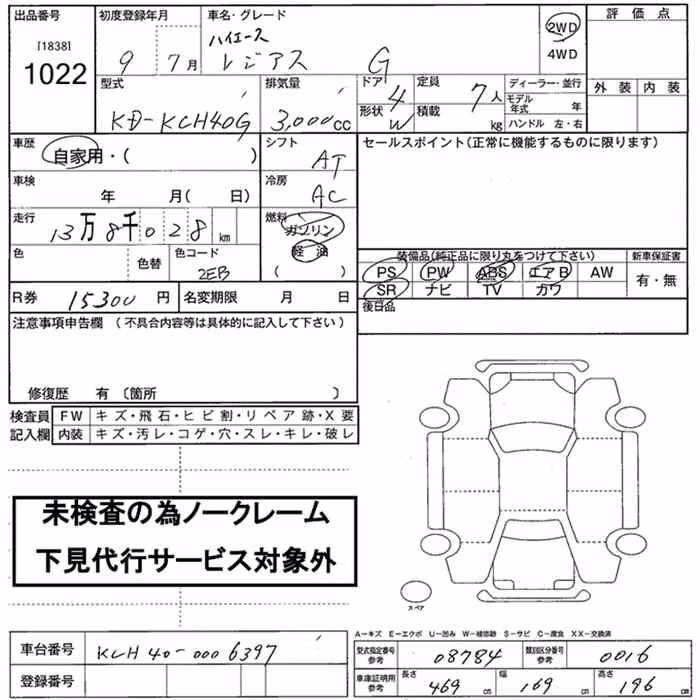 出品番号 初度登録年月 車名・グレード 評価点
[1838] ハイエース 2WD
1022 9年7月 レジアス G 4WD
型式 排気量 ドア 4 定員 7人 ディーラー・並行 外装 内装
KD-KCH40G 3,000cc 形状 W 積載 kg モデル年式 年
ハンドル 左・右
車歴 自家用・( ) シフト AT セールスポイント(正常に機能するものに限ります)
車検 年 月( 日) 冷房 AC
走行 13万8千028km 燃料 ガソリン
色 色替 色コード 2EB 軽油 ( )
装備品(純正品に限り丸をつけて下さい) 新車保証書
PS PW ABS エアB AW 有・無
SR ナビ TV カワ
R券 15300円 名変期限 月 日 後日品
注意事項申告欄 (不具合内容等は具体的に記入して下さい)
修復歴 有 〔箇所 〕
検査員 FW キズ・飛石・ヒビ割・リペア跡・X要
記入欄 内装 キズ・汚レ・コゲ・穴・スレ・キレ・破レ
未検査の為ノークレーム
下見代行サービス対象外
スペア
A-キズ E-エクボ U-凹み W-補修跡 S-サビ C-腐食 XX-交換済
車台番号 KCH40-0006397 型式指定番号 参考 08784 類別区分番号 参考 0016
登録番号 車庫証明用 参考 長さ 469cm 幅 169cm 高さ 196cm